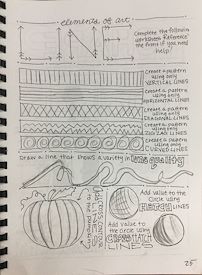 elements of art
Complete the following
worksheet. Reference
the front if you need
help!
Create a pattern
using only
VERTICAL LINES
Create a pattern
using only
HORIZONTAL LINES
Create a pattern
using only
DIAGONAL LINES
Create a pattern
using only
ZIGZAG LINES
Create a pattern
using only
CURVED LINES
Draw a line that shows a variety in line quality
Add value to the
circle using
HATCH
LINES
Add value to
the circle using
CROSS HATCH
LINES
CROSS CONTOUR
LINES
25